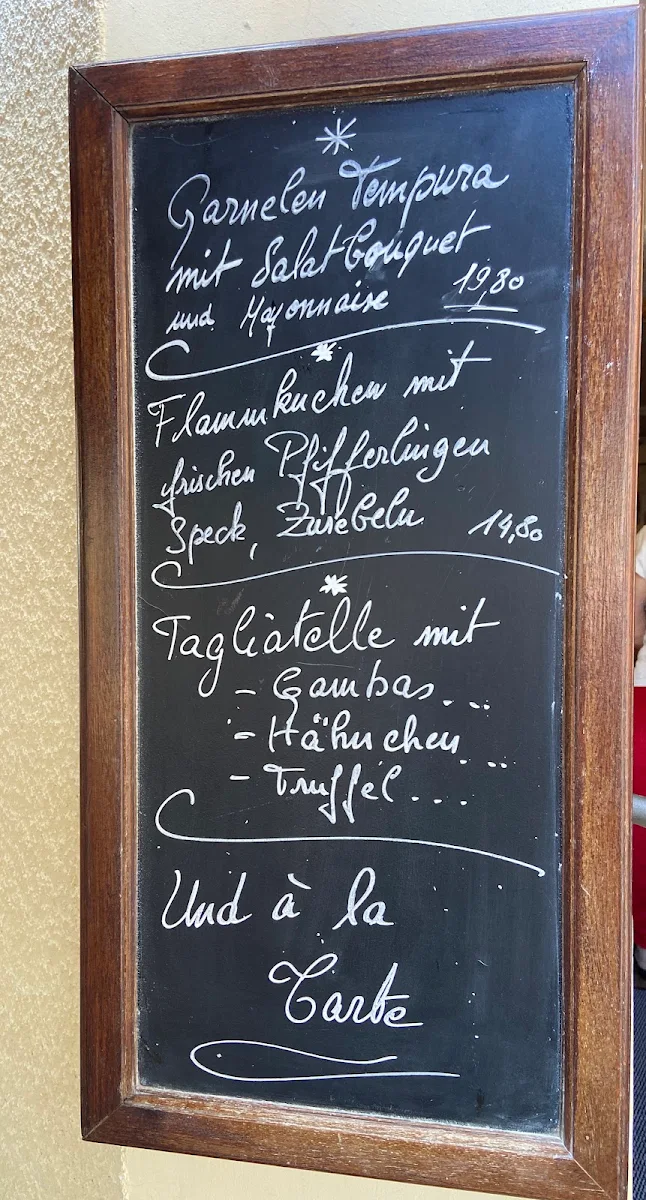 Garnelen Tempura
mit Salatbouquet
und Mayonnaise 19,80
Flammkuchen mit
frischen Pfifferlingen
Speck, Zwiebeln 14,80
Tagliatelle mit
- Gambas...
- Hähnchen...
- Truffel...
Und à la
Carte